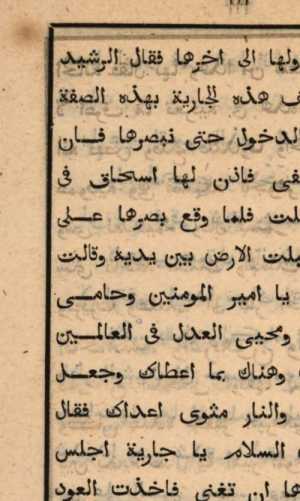 اولها الى اخرها فقال الرشيد
هذه الجارية بهذه الصفة
الدخول حتى نبصرها فان
فاذن لها اسحاق فى
فلما وقع بصرها على
الارض بين يديه وقالت
يا امير المومنين وحامى
ومحيى العدل فى العالمين
وهناك بما اعطاك وجعل
والنار مثوى اعداك فقال
السلام يا جارية اجلس
ان تغنى فاخذت العود